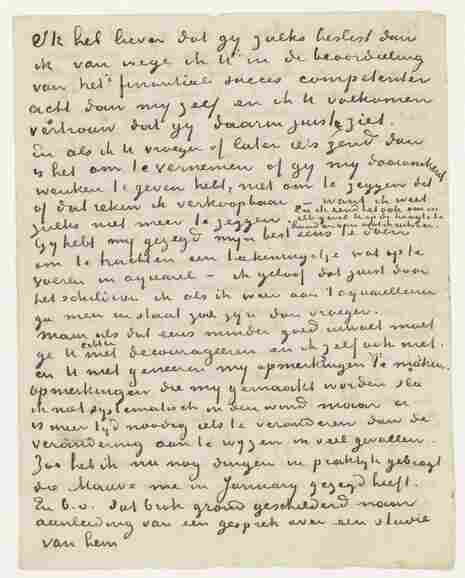 Ik heb liever dat gy zulks beslist dan
ik van wege ik U in de beoordeeling
van het financieel succes competenter
acht dan my zelf en ik U volkomen
vertrouw dat gy daarin juist ziet.
En als ik U vroeger of later iets zend dan
is het om te vernemen of gy my daaromtrent
wenken te geven hebt, niet om te zeggen dit
of dat reken ik verkoopbaar want ik weet
zulks niet meer te zeggen.
En ik zend het ook om in
't algemeen U op de hoogte te
houden van wat ik uitvoer.
Gy hebt my gezegd myn best eens te doen
om te trachten een teekeningetje wat op te
voeren in aquarel – ik geloof dat juist door
het schilderen ik als ik weer aan 't aquarelleren
ga meer in staat zal zyn dan vroeger.
Maar als dat eens minder goed uitvalt moet
ge U echter niet decourageren en ik zelf ook niet.
en U niet generen my opmerkingen te maken.
opmerkingen die my gemaakt worden sla
ik niet systematisch in den wind maar er
is meer tyd noodig iets te veranderen dan de
verandering aan te wyzen in veel gevallen.
Zoo heb ik nu nog dingen in praktyk gebragt
die Mauve me in January gezegd heeft.
En b.v. dat brok grond geschilderd naar
aanleiding van een gesprek over een studie
van hem